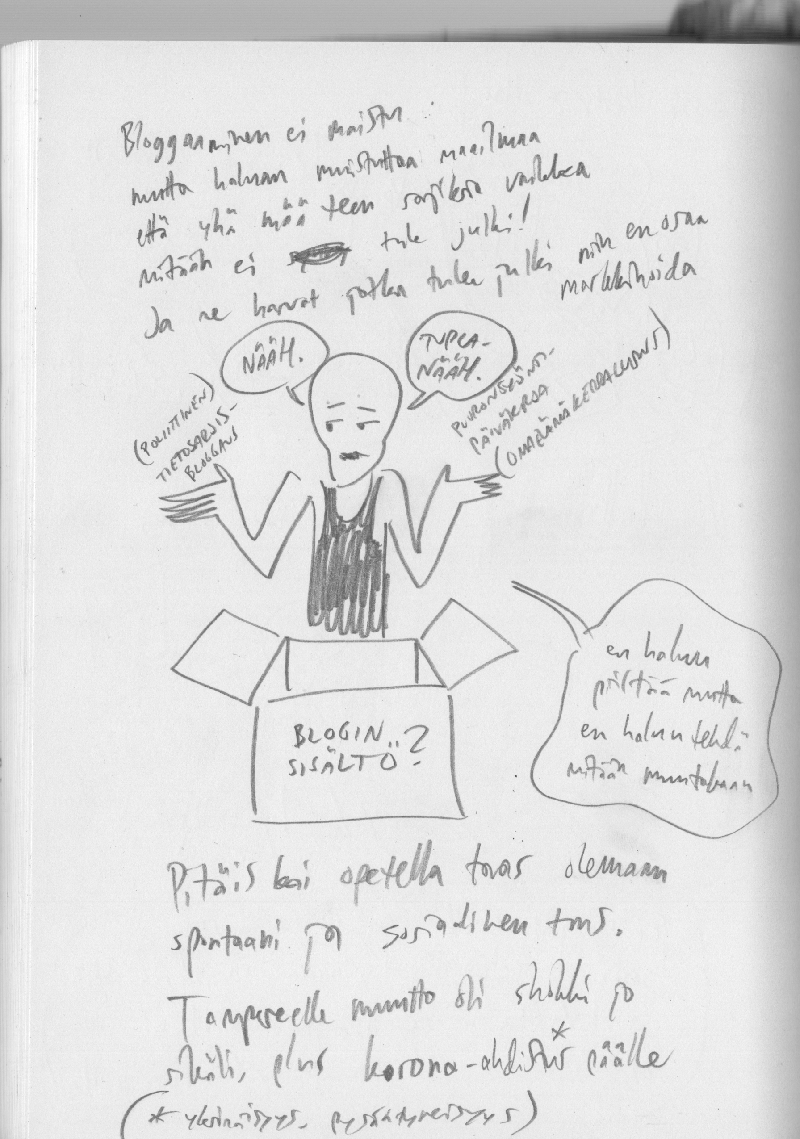 Bloggaaminen ei maistu
mutta haluan muistuttaa maailmaa
että yhä mää teen sarjiksia vaikka
mitään ei tule julki!
Ja ne harvat jotka tulee julki niin en osaa
markkinoida
NÄÄH.
TUPLA-
NÄÄH.
(POLIITTINEN)
TIETOSARJIS-
BLOGGAUS
PUURONSYÖNTI-
PÄIVÄKIRJA
(OMAELÄMÄKERRALLISUUS)
BLOGIN
SISÄLTÖ?
en haluu
piirtää mutta
en haluu tehdä
mitään muutakaan
Pitäis kai opetella taas olemaan
spontaani ja sosiaalinen tms.
Tampereelle muutto oli shokki jo
sikäli, plus korona-ahdistus* päälle
(* yksinäisyys, pysähtyneisyys)